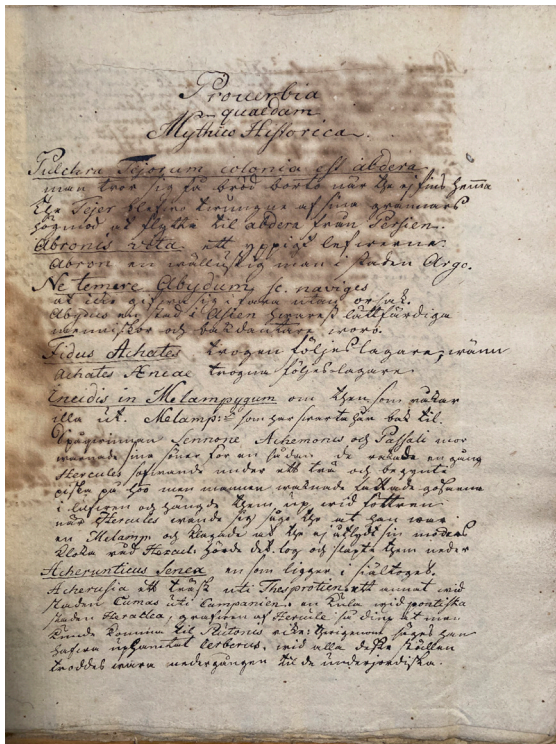 Proverbia
quaedam
Mythico Historica.
Pulchra Tejorum colonia est abdera
man tror sig få bröd borta när the ej fins hemma
the Tejer blefvo tvungne af sina grannars
högmod at flytta til abdera från Persien.
Abronis vita ett yppigt lefverne.
Abron en wällustig man i staden Argo.
Ne temere Abydum, sc. naviges
at icke gifva sig i fara utan orsak.
Abydus en stad i Asien hvarest lättfärdiga
menniskor och bakdantare woro.
Fidus Achates trogen följeslagare, wänn
Achates Aeneae trogna följeslagare.
incidis in Melampygum om them som råkar
illa ut. Melamp: som har svarta hår bak til.
Spågvinnan Sennone Achemonis och Passali mor
warnade sina söner för en sådan de rånade en gång
Hercules sofvande under ett trä och begynte
på men mannen waknade fattade
i och hängde them up wid fötteren
när Hercules wände sig sågo the at han war
en Melamp och klagade at the ej åtlydt sin moders
kloka råd Hercul: hörde det log och slapte them neder
Acherunticus Senex en som ligger i siältoget.
Acherusia ett träsk uti Thesprotien, ett annat wid
staden Cumas uti Campanien. en kula wid pontiska
staden Heraclea, grafven af Hercule så diup at man
kunde komma til Plutonis rike: säges han
hafva uphämtat Cerberus. wid alla desse ställen
troddes wara nedergången til de underjordiska.